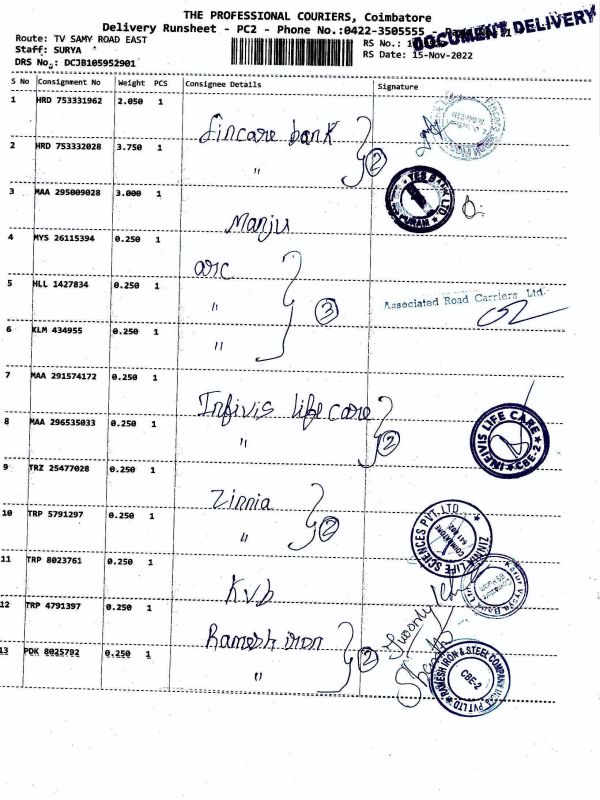 THE PROFESSIONAL COURIERS, Coimbatore
Delivery Runsheet - PC2 - Phone No.:0422-3505555 -
DOCUMENT DELIVERY
Route: TV SAMY ROAD EAST
RS No.:
Staff: SURYA
RS Date: 15-Nov-2022
DRS No.: DCJB105952901
S No Consignment No Weight PCS Consignee Details Signature
1 HRD 753331962 2.050 1 fincare bank
2 HRD 753332028 3.750 1 " 2
YES BANK LTD.
3 MAA 295009028 3.000 1 Manju
4 MYS 26115394 0.250 1 arc
5 HLL 1427834 0.250 1 " 3 Associated Road Carriers Ltd.
6 KLM 434955 0.250 1 "
7 MAA 291574172 0.250 1 Infivis life care
8 MAA 296535033 0.250 1 " 2
LIFE CARE
CBE-2
9 TRZ 25477028 0.250 1 Zinnia
10 TRP 5791297 0.250 1 " 2
ZINNIA LIFE SCIENCES PVT. LTD.
COIMBATORE
11 TRP 8023761 0.250 1 Kvb
12 TRP 4791397 0.250 1 Ramesh iron
13 PDK 8025792 0.250 1 " 2
RAMESH IRON & STEEL COMPANY PVT LTD.
CBE-2